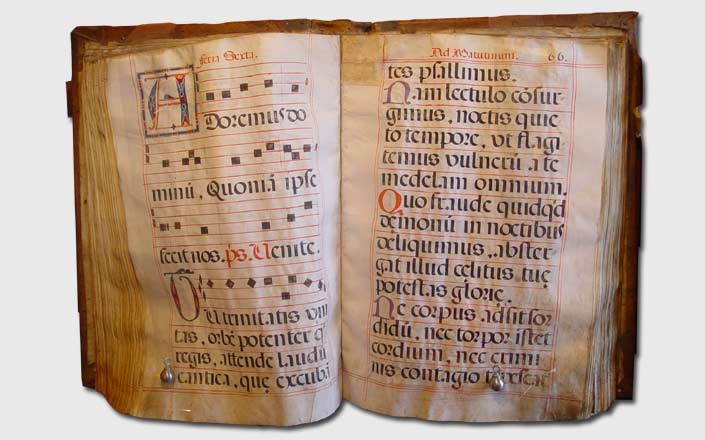 feria Sexta.
ADoremus do
minū, Quoniā ipse
fecit nos. ps. Uenite.
TU trinitatis vni
tas, orbē potenter q̄
regis, attende laudū
cantica, quę excubā
Ad Matutinum. 66.
tes psallimus.
Nam lectulo cōsur-
gimus, noctis quie
to tempore, vt flagi
temus vulnerū a te
medelam omnium.
Quo fraude quidq'd
dęmonū in noctibus
deliquimus, abster-
gat illud cęlitus tuę
potestas glorię.
Ne corpus adsit sor
didū, nec torpor istet
cordium, nec crimi
nis contagio